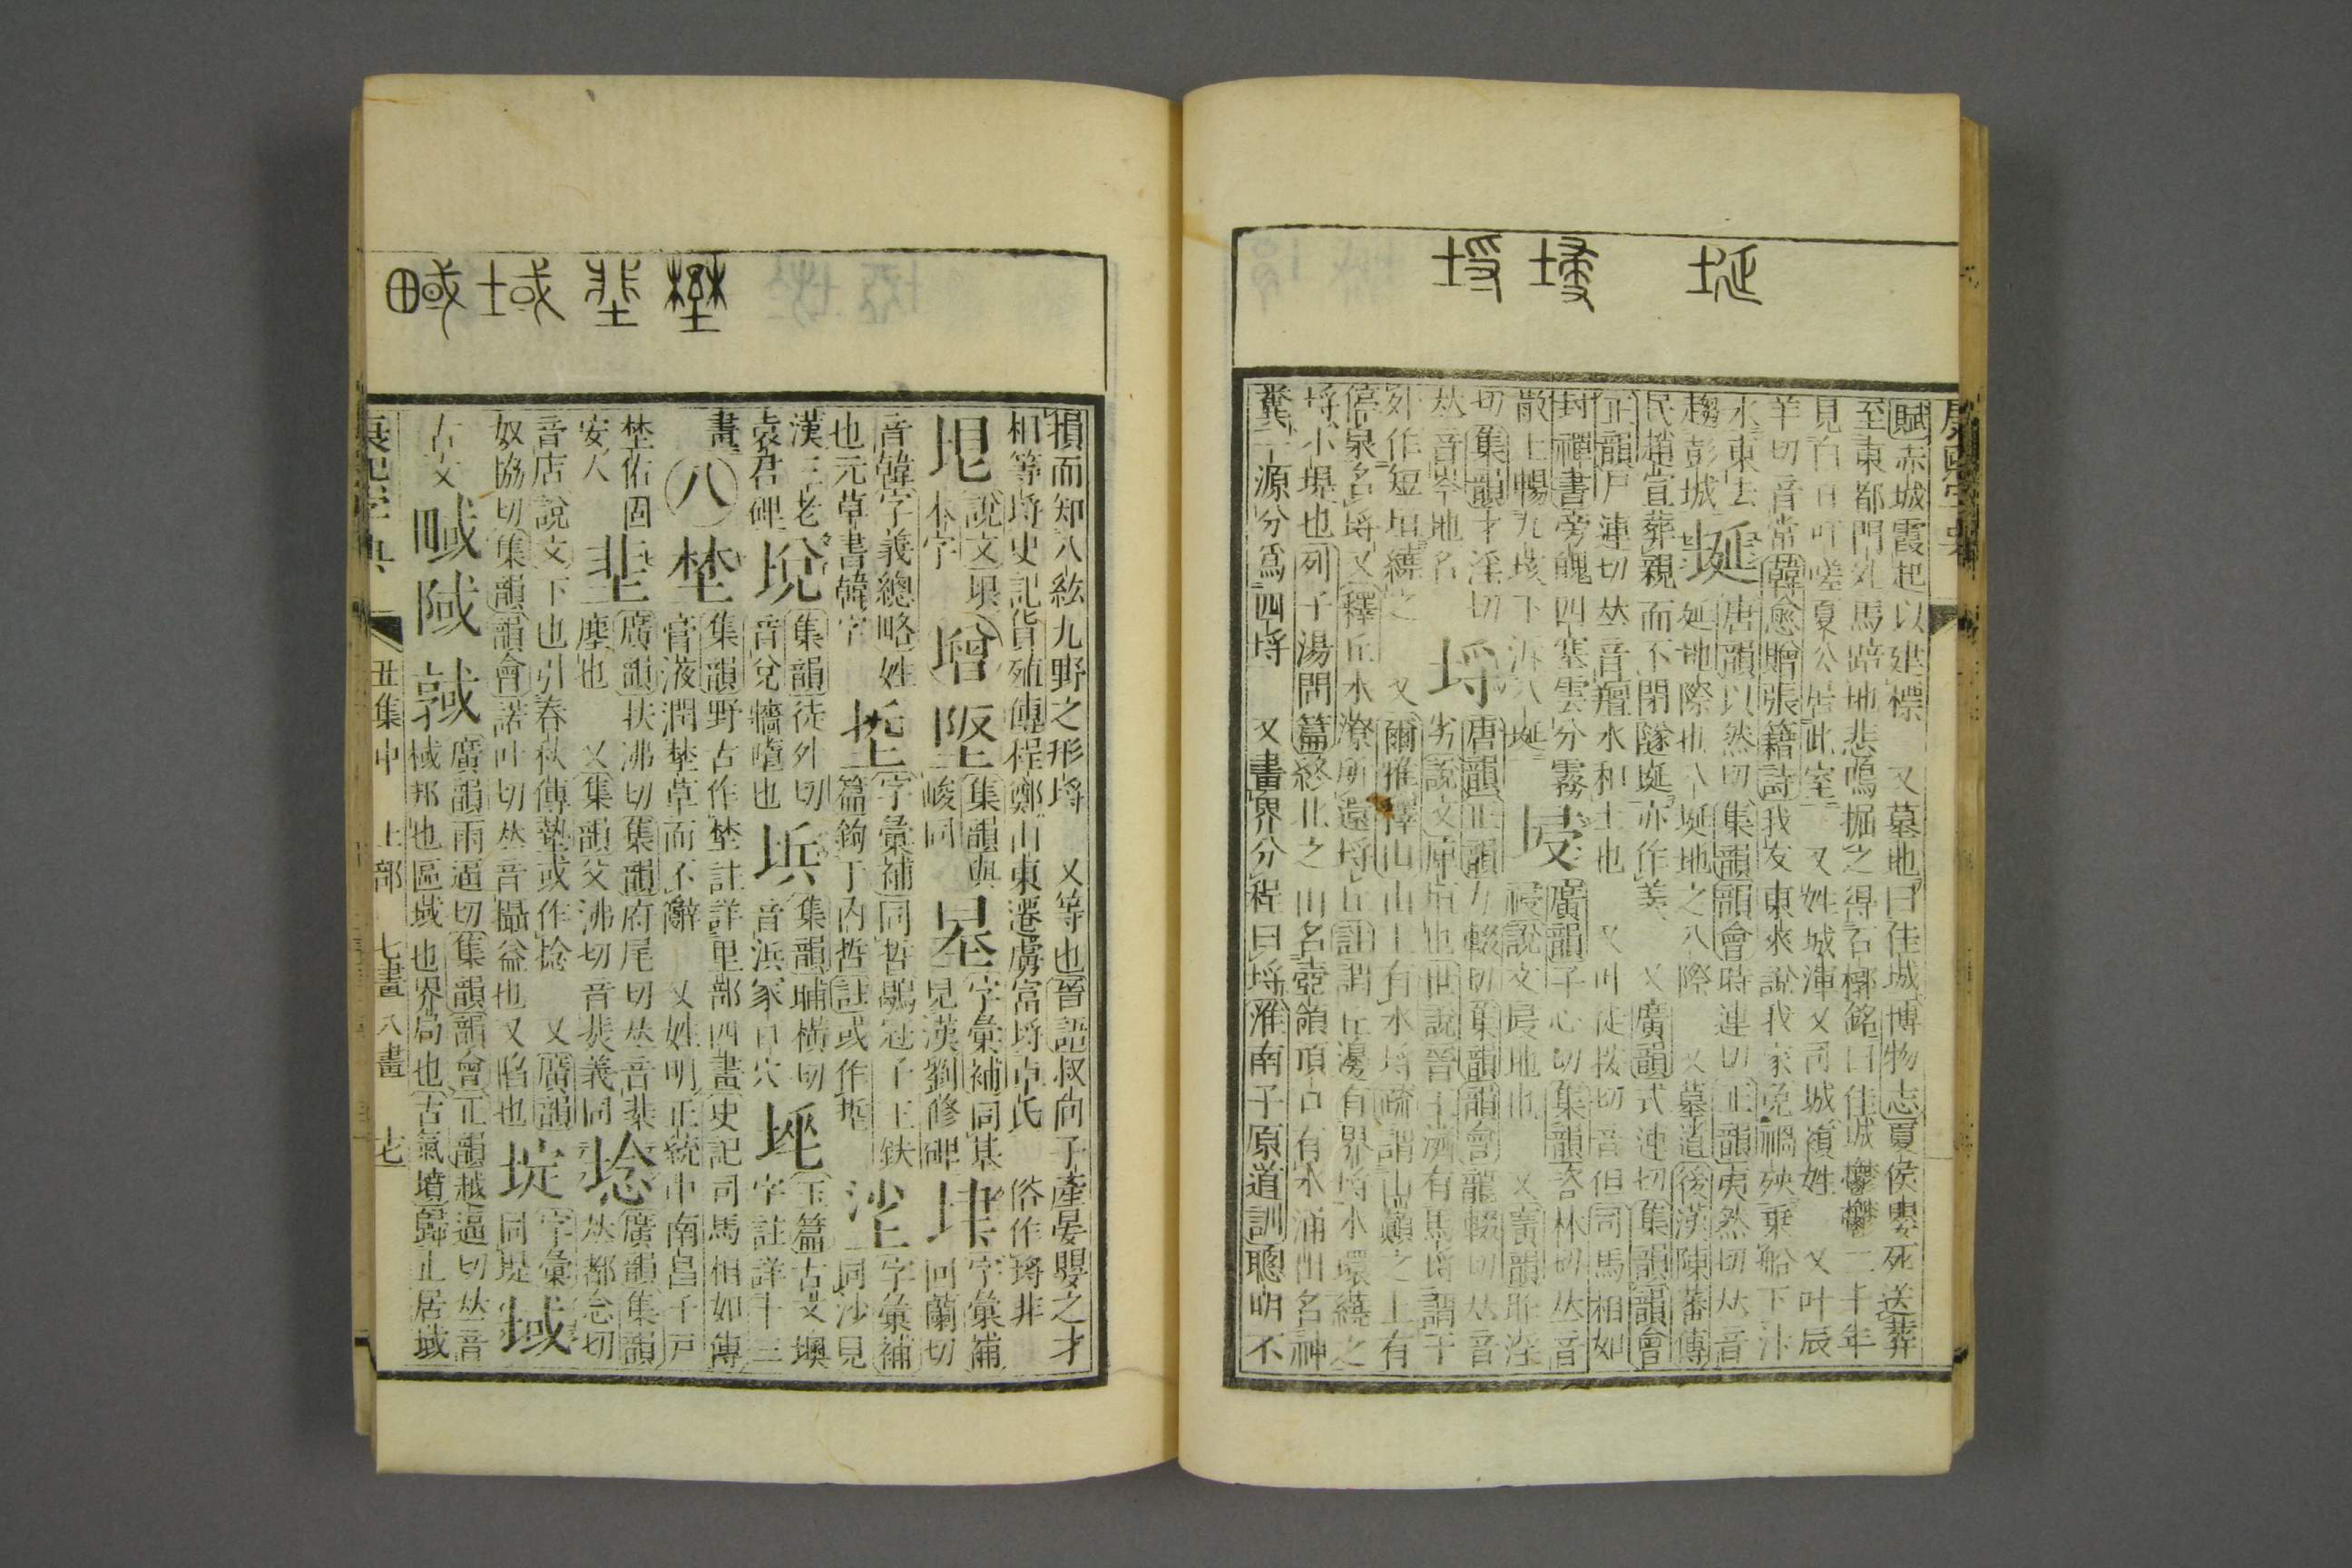 埏 埐 埒
康熙字典
賦赤城霞起以建標 又墓地曰佳城博物志夏侯嬰死送葬
至東都門外馬踣地悲鳴掘之得石槨銘曰佳城鬱鬱三千年
見白日吁嗟夏公居此室 又姓城渾又司城複姓 又叶辰
羊切音常韓愈贈張籍詩我友東來說我家免禍殃乘船下汴
水東去 埏 唐韻以然切集韻韻會時連切正韻夷然切𠀤音
趨彭城 延地際也八埏地之八際 又墓道後漢陳蕃傳
民趙宣葬親而不閉隧埏亦作羨 又廣韻式連切集韻韻會
正韻尸連切𠀤音羶水和土也 又叶徒按切音但司馬相如
封禪書旁魄四塞雲分霧 埐 廣韻子心切集韻咨林切𠀤音
散上暢九垓下泝八埏 祲說文埐地也 又廣韻昨淫
切集韻才淫切 埒 唐韻正韻力輟切集韻韻會龍輟切𠀤音
𠀤音岑地名 劣說文庳垣也世說晉王濟有馬埒謂于
外作短垣繞之 又爾雅釋山山上有水埒疏謂山巔之上有
停泉名埒又釋丘水潦所還埒丘註謂丘邊有界埒水環繞之
埒小堤也列子湯問篇終北之山名壺領頂口有水涌出名神
瀵一源分爲四埒 又畫界分程曰埒淮南子原道訓聰明不
野 域
損而知八紘九野之形埒 又等也晉語叔向子產晏嬰之才
相等埒史記貨殖傳程鄭山東遷虜富埒卓氏 俗作㙞非
說文垠 集韻與 字彙補同基 字彙補
本字 峻同 見漢劉修碑 同蘭切
音韓字義總略姓 字彙補同哲鶡冠子王鈇 字彙補
也元草書韓字 篇鉤于內哲註或作埑 同沙見
漢三老 集韻徒外切 集韻晡橫切 玉篇古文堧
袁君碑 音兌牆嶞也 音浜冢曰穴 字註詳十三
畫 八 埜 集韻野古作埜註詳里部四畫史記司馬相如傳
膏液潤埜草而不辭 又姓明正統中南昌千戶
埜佑固 廣韻扶沸切集韻府尾切𠀤音棐 埝 廣韻集韻
安人 塵也 又集韻父沸切音扉義同 𠀤都念切
音店說文下也引春秋傳墊或作埝 又廣韻 埞 字彙 域
奴協切集韻韻會諾叶切𠀤音攝益也又陷也 同堤
古文 廣韻雨逼切集韻韻會正韻越逼切𠀤音
棫邦也區域也界局也古氣墳歸止居域
康熙字典 丑集中 土部 七畫 八畫